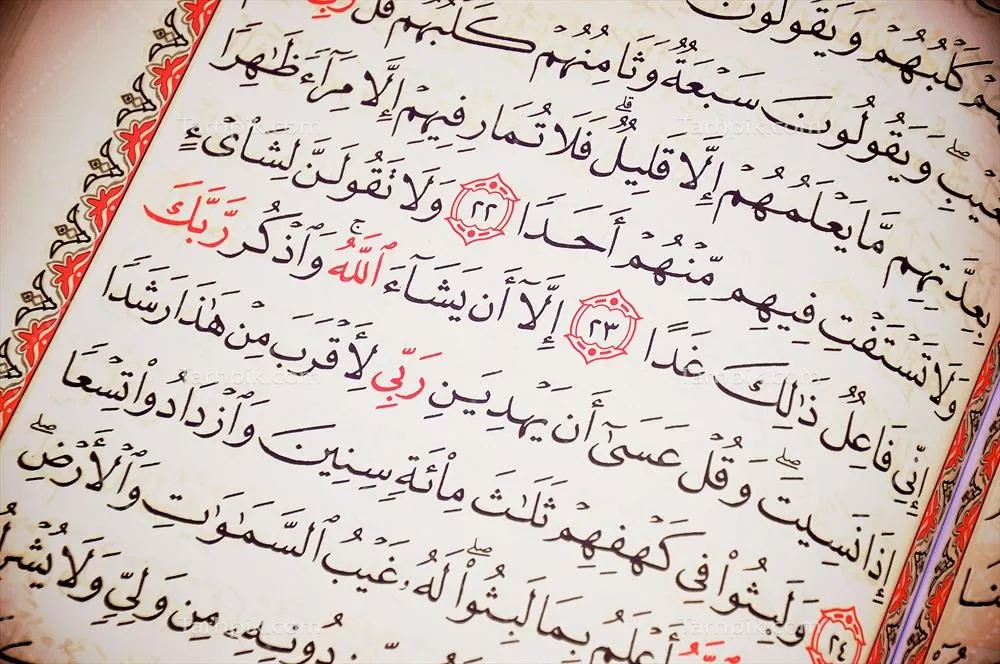 كَلْبُهُمْ وَيَقُولُونَ
وَيَقُولُونَ سَبْعَةٌ وَثَامِنُهُمْ كَلْبُهُمْ ۚ قُل
بِعِدَّتِهِم مَّا يَعْلَمُهُمْ إِلَّا قَلِيلٌ ۗ فَلَا تُمَارِ فِيهِمْ إِلَّا مِرَآءً ظَٰهِرًا
وَلَا تَسْتَفْتِ فِيهِم مِّنْهُمْ أَحَدًا ٢٢ وَلَا تَقُولَنَّ لِشَا۟ىْءٍ
إِنِّي فَاعِلٌ ذَٰلِكَ غَدًا ٢٣ إِلَّآ أَن يَشَآءَ ٱللَّهُ ۚ وَٱذْكُر رَّبَّكَ
إِذَا نَسِيتَ ۖ وَقُلْ عَسَىٰٓ أَن يَهْدِيَنِ رَبِّي لِأَقْرَبَ مِنْ هَٰذَا رَشَدًا
٢٤ وَلَبِثُوا۟ فِي كَهْفِهِمْ ثَلَٰثَ مِا۟ئَةٍ سِنِينَ وَٱزْدَادُوا۟ تِسْعًا
أَعْلَمُ بِمَا لَبِثُوا۟ ۖ لَهُۥ غَيْبُ ٱلسَّمَٰوَٰتِ وَٱلْأَرْضِ ۖ
دُونِهِۦ مِن وَلِيٍّ وَلَا
Tarhpik.com